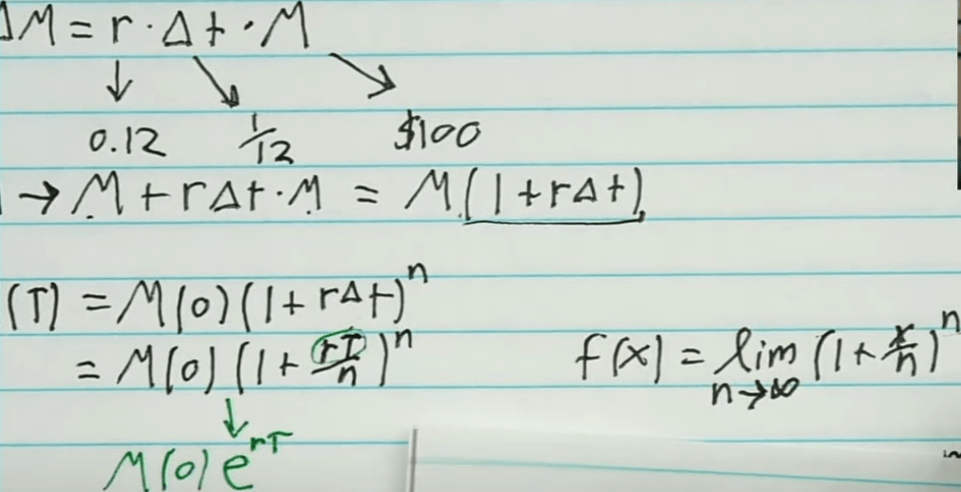 ΔM = r · Δt · M
↓ ↘ ↘
0.12 1/12 $100
→ M + rΔt · M = M(1 + rΔt)
(T) = M(0)(1 + rΔt)^n
= M(0)(1 + rT/n)^n
f(x) = lim n→∞ (1 + x/n)^n
↓
M(0)e^rT